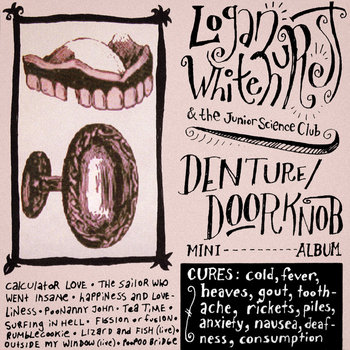 Logan
Whitehurst
& the Junior Science Club
DENTURE/
DOORKNOB
MINI ALBUM
CALCULATOR LOVE • THE SAILOR WHO
WENT INSANE • HAPPINESS AND LOVE-
LINESS • POONANNY JOHN • TEA TIME •
SURFING IN HELL • FISSION OR FUSION •
RUMBLECOOKIE • LIZARD AND FISH (live) •
OUTSIDE MY WINDOW (live) • POOPOO BRIDGE
CURES: cold, fever,
heaves, gout, tooth-
ache, rickets, piles,
anxiety, nausea, deaf-
ness, consumption